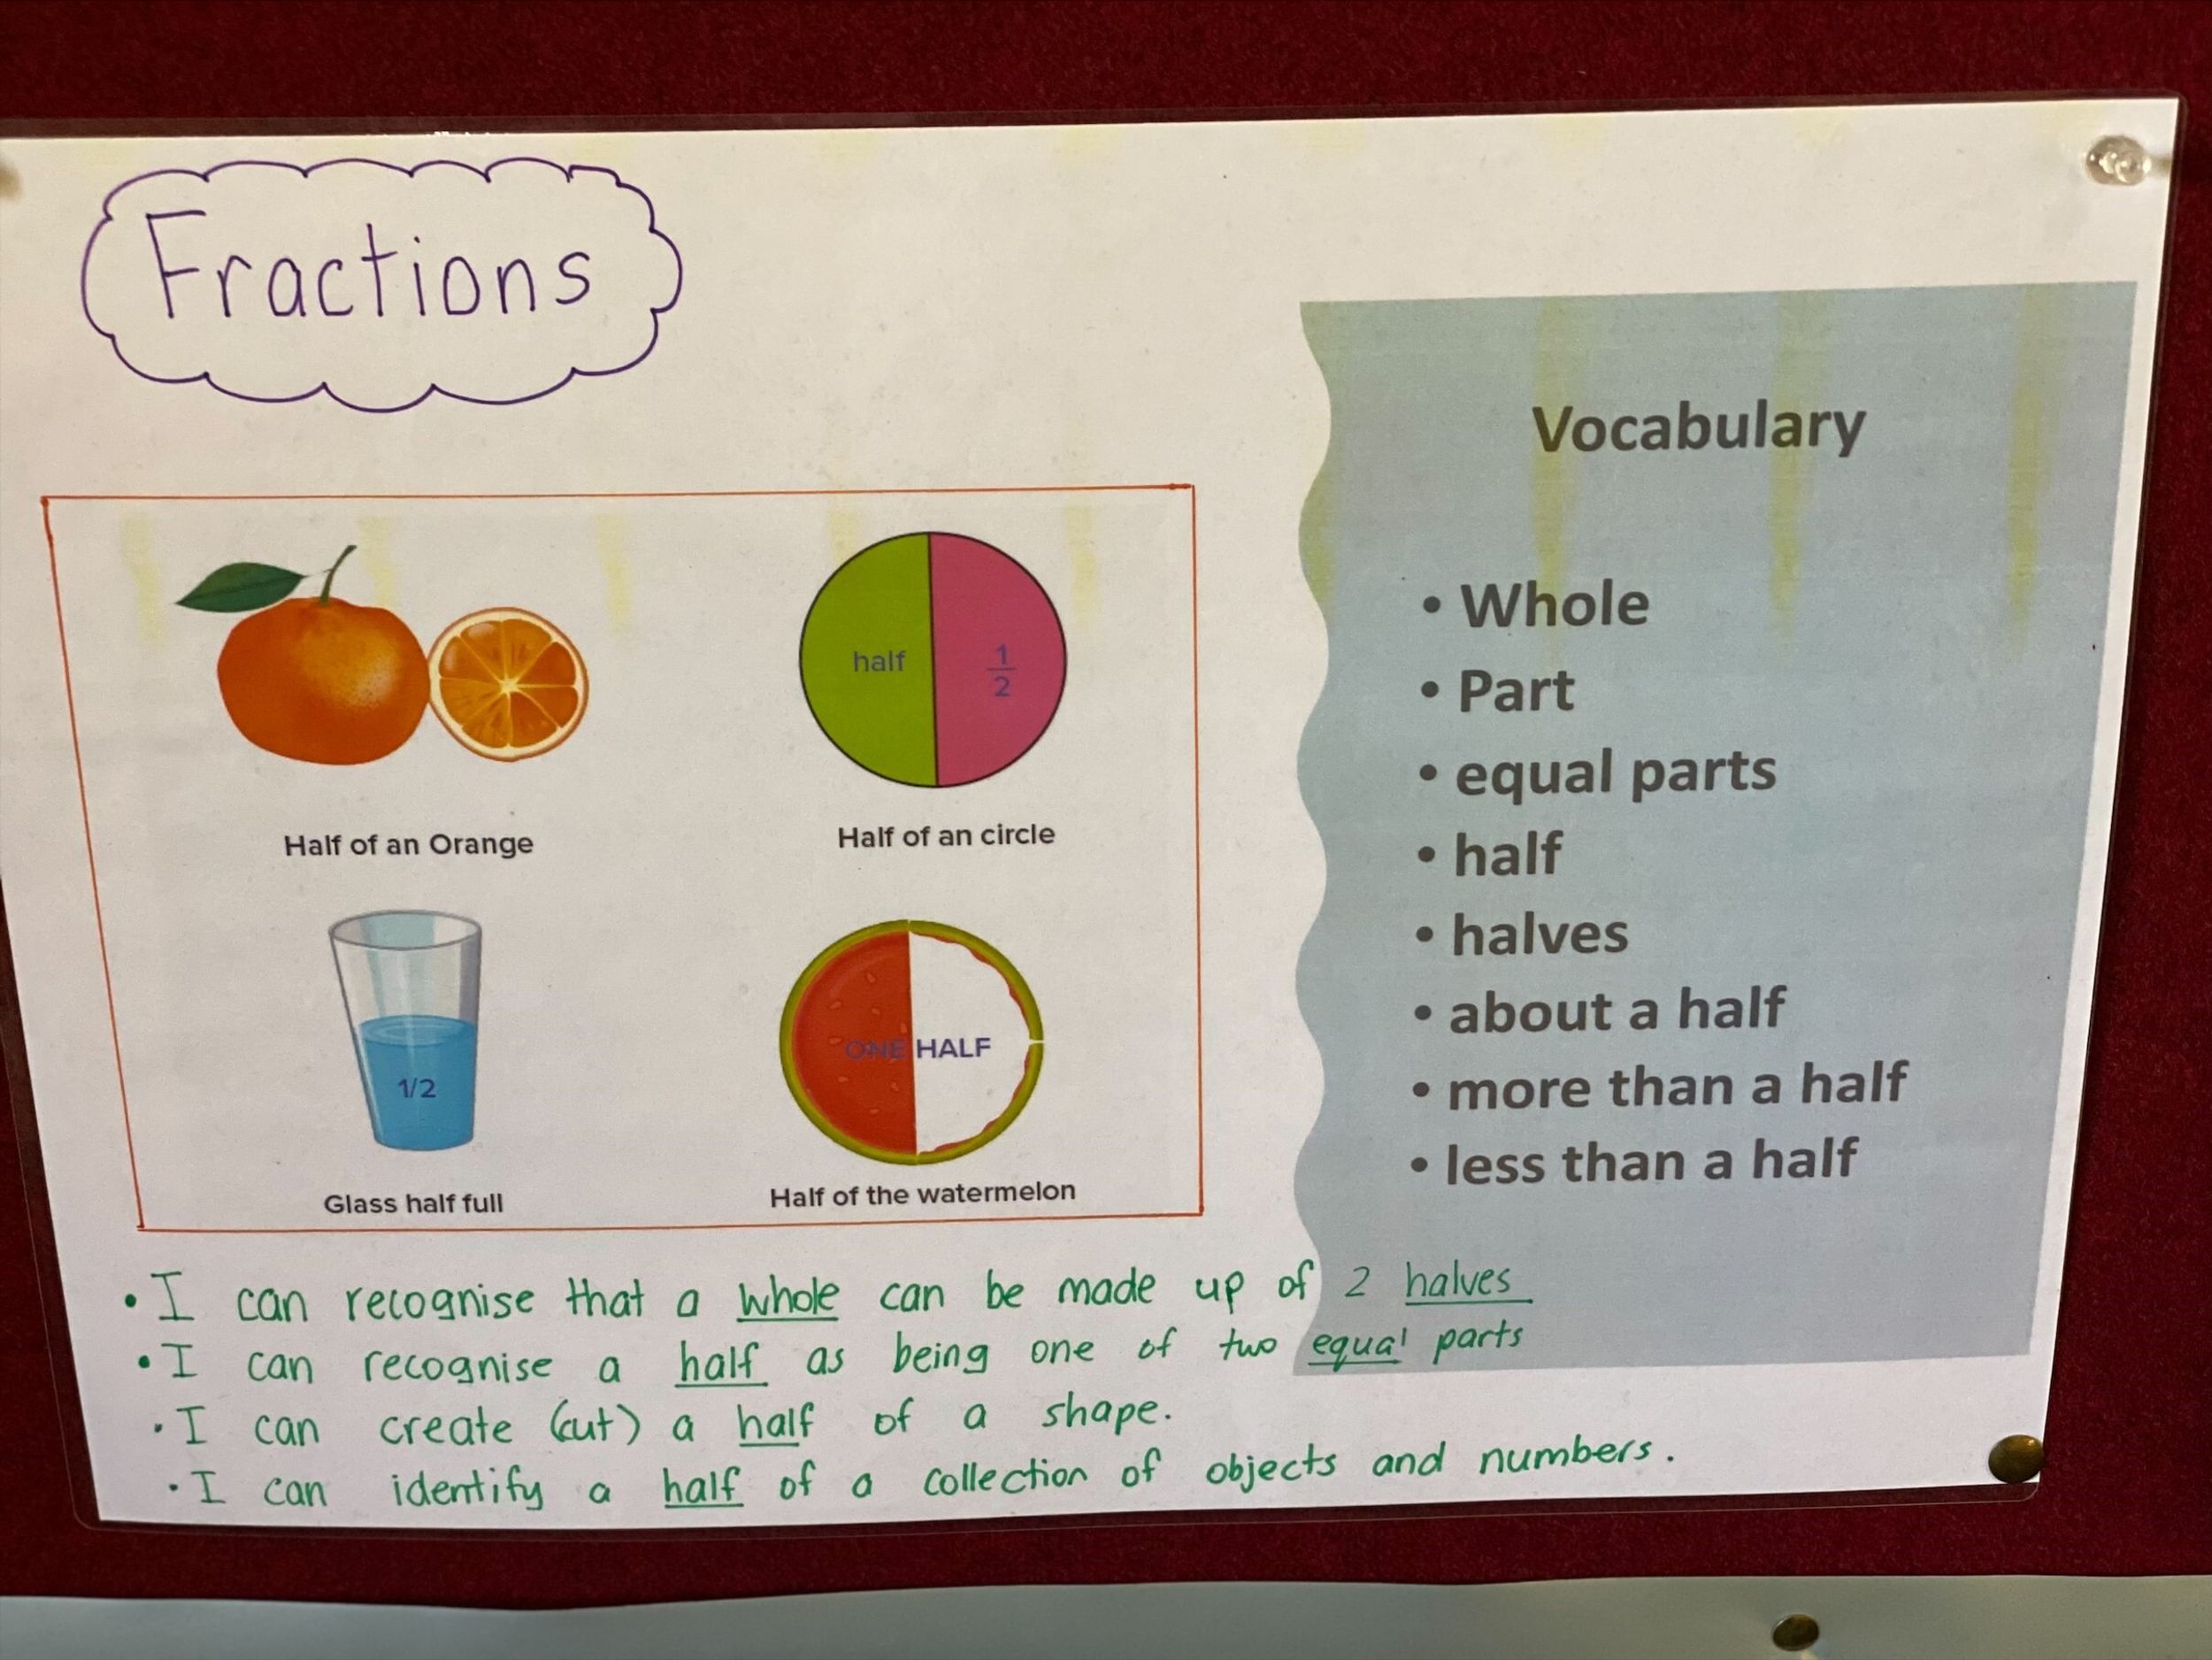 Fractions
half
1
2
Half of an Orange
Half of an circle
1/2
ONE HALF
Glass half full
Half of the watermelon
Vocabulary
• Whole
• Part
• equal parts
• half
• halves
• about a half
• more than a half
• less than a half
• I can recognise that a whole can be made up of 2 halves
• I can recognise a half as being one of two equal parts
• I can create (cut) a half of a shape.
• I can identify a half of a collection of objects and numbers.